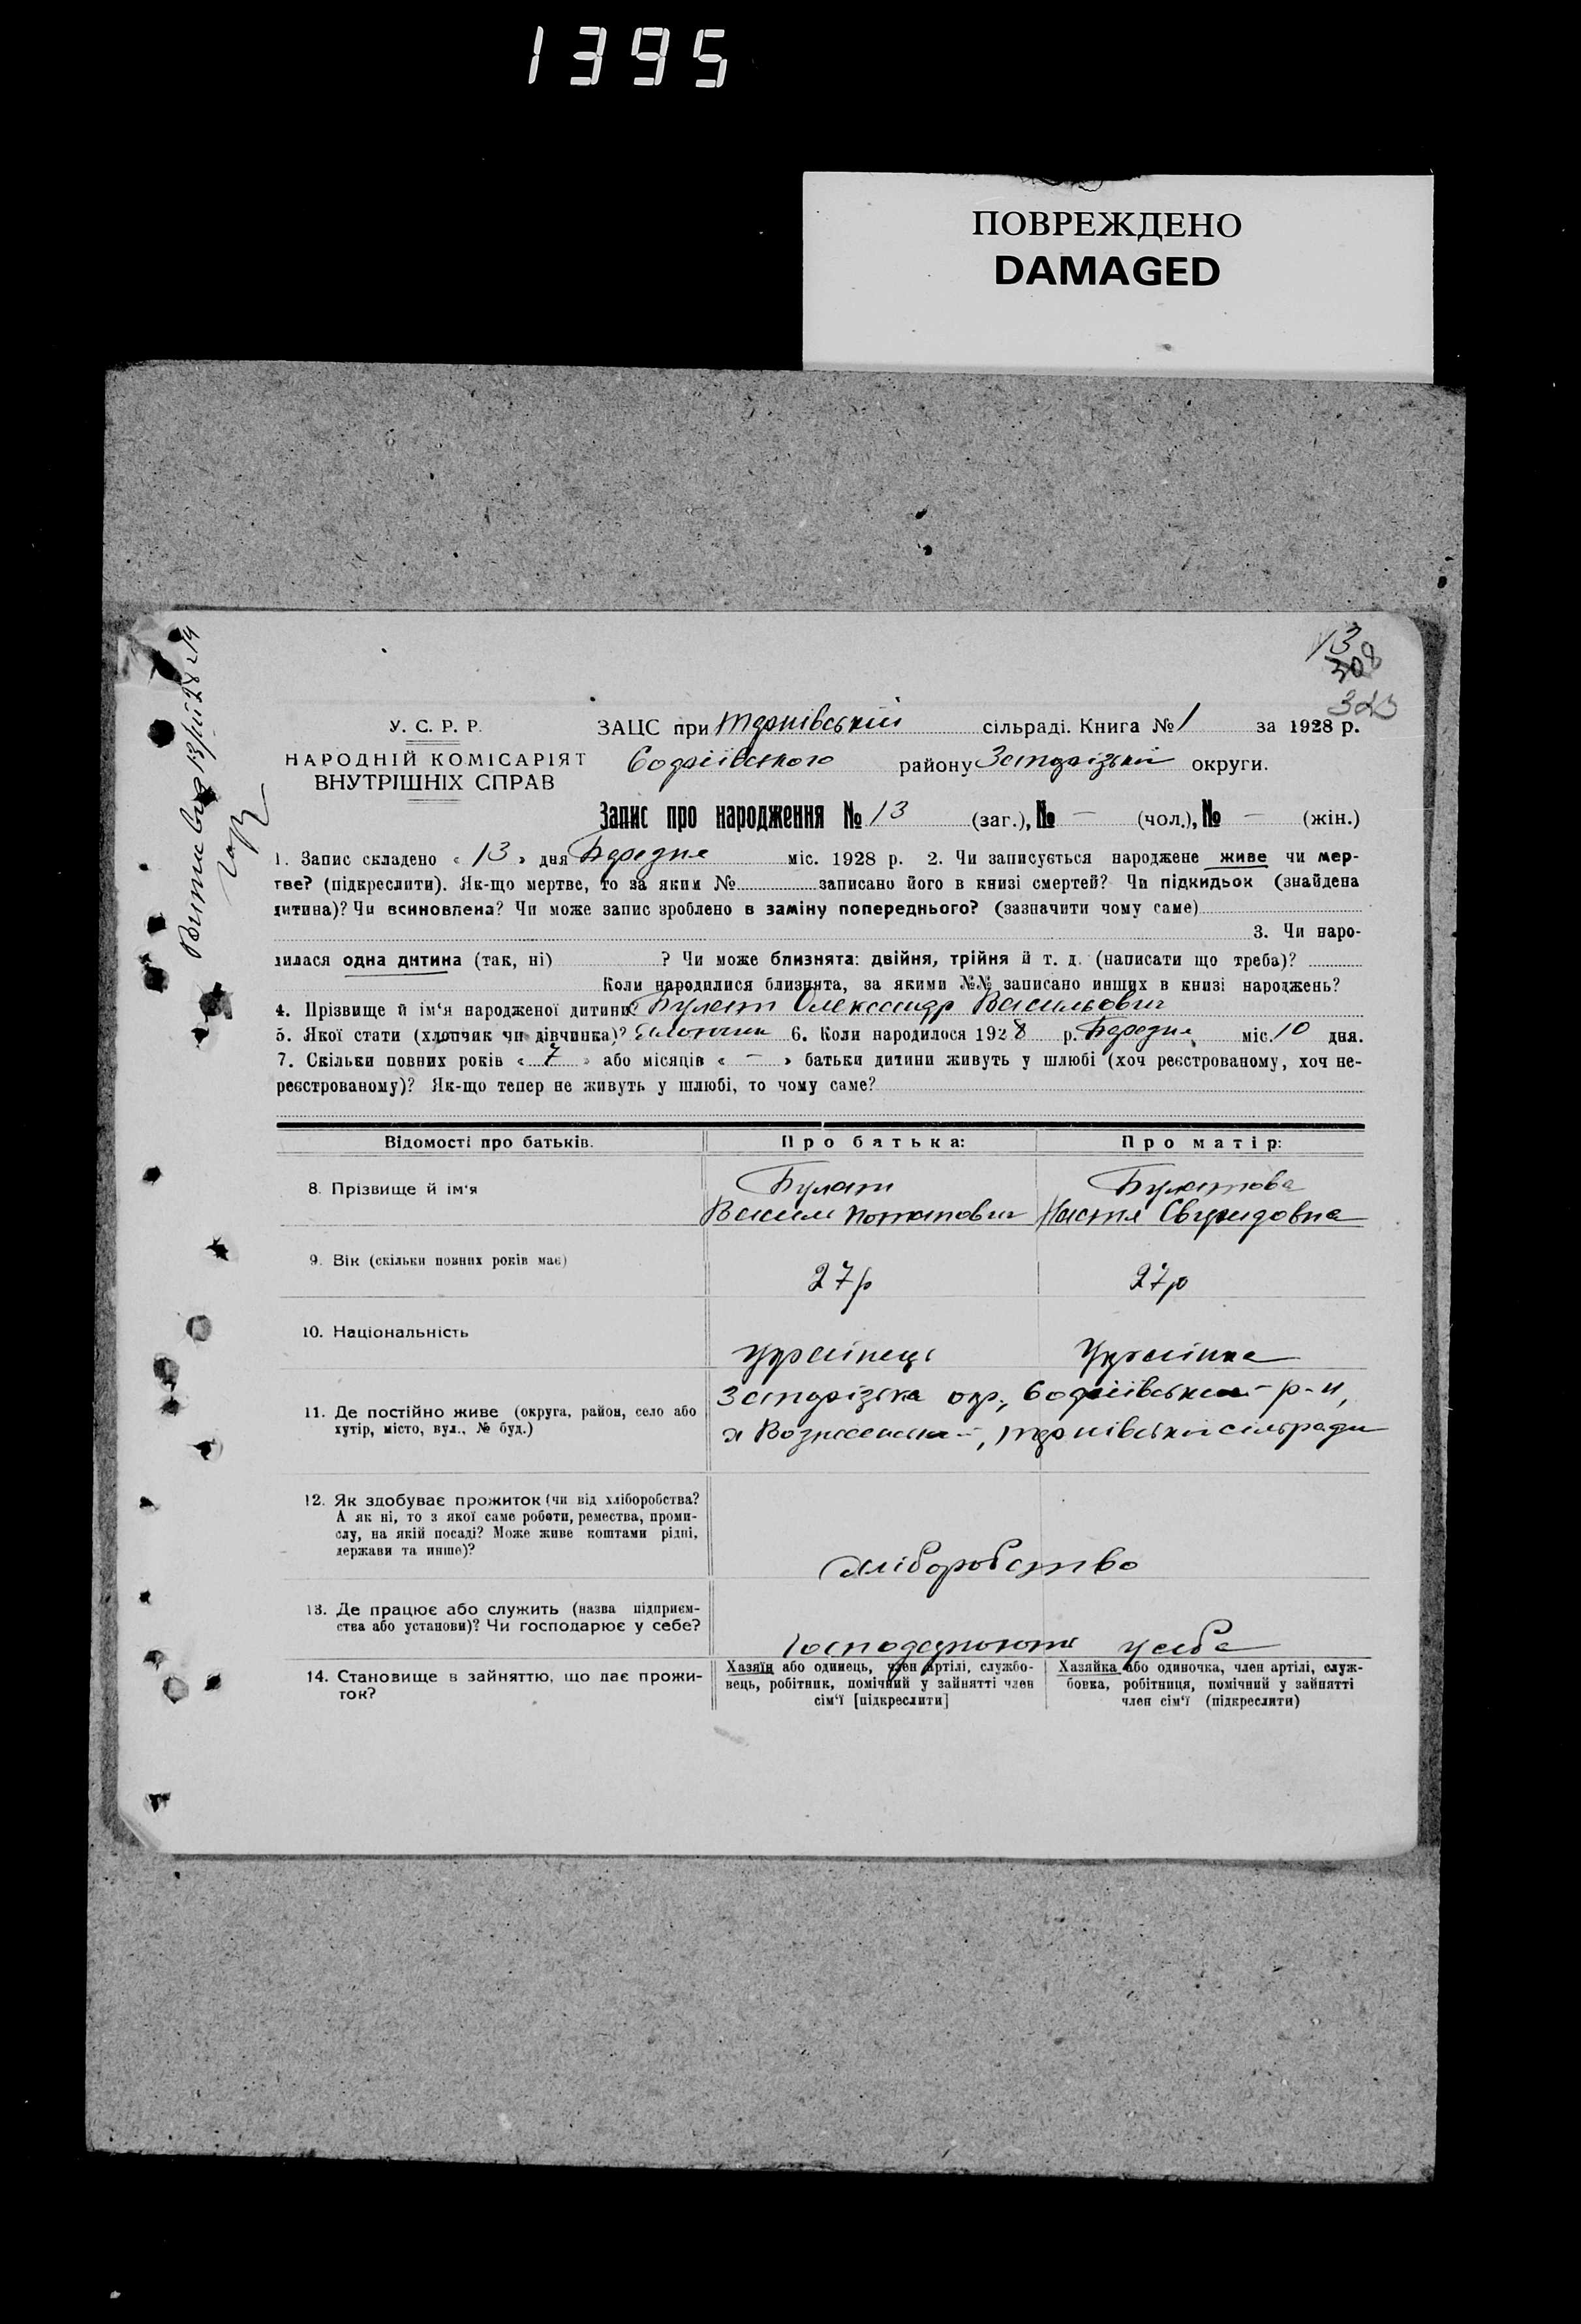 1395
ПОВРЕЖДЕНО
DAMAGED
13
308
У. С. Р. Р.
НАРОДНІЙ КОМІСАРІЯТ
ВНУТРІШНІХ СПРАВ
ЗАЦС при сільраді. Книга № 1 за 1928 р.
Софіївського району Запорізької округи.
Запис про народження № 13 (заг.), № — (чол.), № — (жін.)
1. Запис складено « 13 » дня Березня міс. 1928 р. 2. Чи записується народжене живе чи мер-
тве? (підкреслити). Як-що мертве, то за яким № записано його в книзі смертей? Чи підкидьок (знайдена
дитина)? Чи всиновлена? Чи може запис зроблено в заміну попереднього? (зазначити чому саме)
3. Чи наро-
дилася одна дитина (так, ні) ? Чи може близнята: двійня, трійня й т. д. (написати що треба)?
Коли народилися близнята, за якими №№ записано инших в книзі народжень?
4. Прізвище й ім'я народженої дитини? Булат Олександр Васильович
5. Якої стати (хлопчик чи дівчинка)? хлопчик 6. Коли народилося 1928 р. Березня міс. 10 дня.
7. Скільки повних років « 7 » або місяців « — » батьки дитини живуть у шлюбі (хоч реєстрованому, хоч не-
реєстрованому)? Як-що тепер не живуть у шлюбі, то чому саме?
Відомості про батьків. Про батька: Про матір:
8. Прізвище й ім'я Булат Булатова
Василь Потапович Настя Свиридовна
9. Вік (скільки повних років має) 27р 27р
10. Національність Українець Українка
Запорізька окр., Софіївський р-н,
11. Де постійно живе (округа, район, село або
хутір, місто, вул., № буд.) сільради
12. Як здобуває прожиток (чи від хліборобства?
А як ні, то з якої саме роботи, ремества, проми-
слу, на якій посаді? Може живе коштами рідні,
держави та инше)? Хліборобство
13. Де працює або служить (назва підприєм-
ства або установи)? Чи господарює у себе? Господарюють у себе
14. Становище в зайняттю, що дає прожи-
ток?
Хазяїн або одинець, член артілі, службо-
вець, робітник, помічний у зайнятті член
сім'ї [підкреслити]
Хазяйка або одиночка, член артілі, служ-
бовка, робітниця, помічний у зайнятті
член сім'ї (підкреслити)